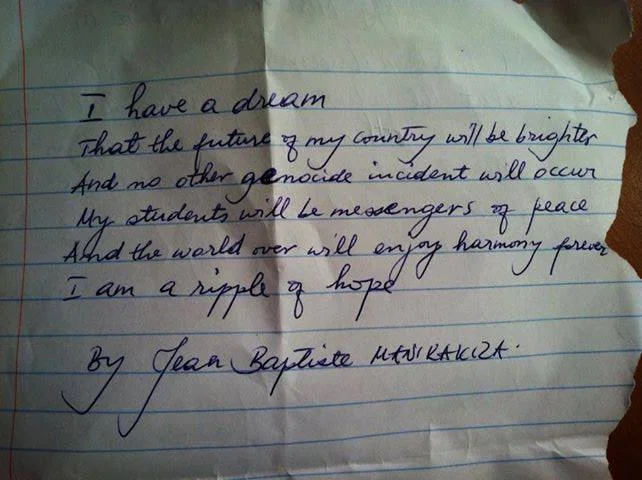 I have a dream
That the future of my country will be brighter
And no other genocide incident will occur
My students will be messengers of peace
And the world over will enjoy harmony forever
I am a ripple of hope
By Jean Baptiste MANIRAKIZA.